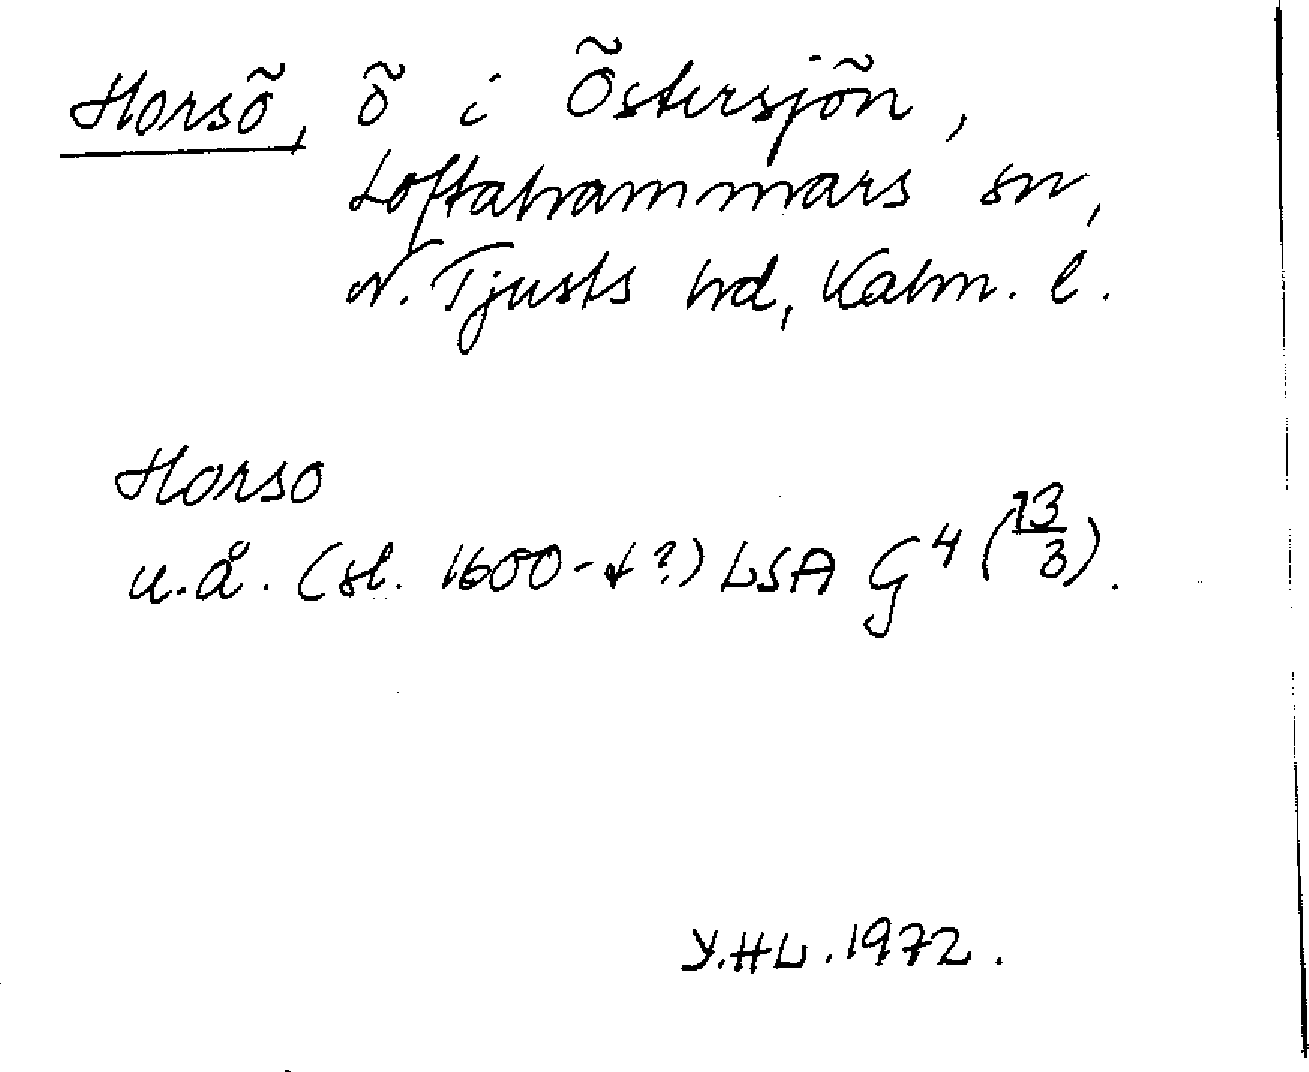 Horsö, ö i Östersjön,
Loftahammars sn,
N. Tjusts hd, Kalm. l.
Horso
u.å. (sl. 1600-t?) LSA G4 (13/3).
Y.HL.1972.